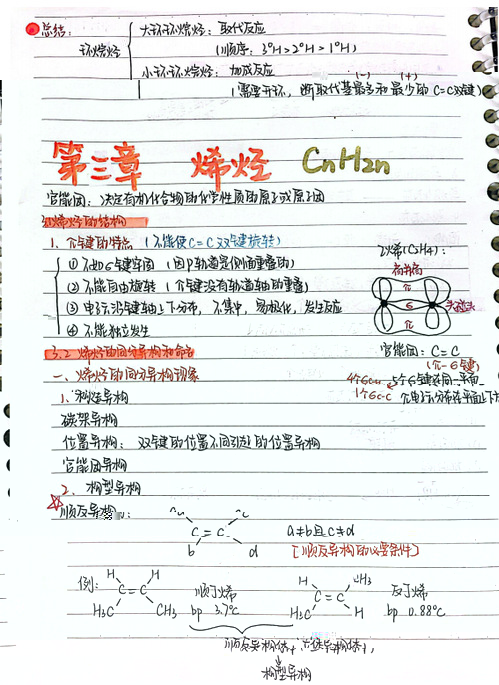 总结:
环烷烃
大环环烷烃: 取代反应
(顺序: 3°H>2°H>1°H)
小环环烷烃: 加成反应
(-) (+)
(需要开环, 断取代基最多和最少的 C-C键)
第三章 烯烃 CnH2n
官能团: 决定有机化合物的化学性质的原子或原子团
3.1 烯烃的结构
1. π键的特点 (不能使C=C双键旋转)
① 不如σ键牢固 (因P轨道是侧面重叠的)
② 不能自由旋转 (π键没有轨道轴的重叠)
③ 电子云沿键轴上下分布, 不集中, 易极化, 发生反应
④ 不能独立发生
乙烯(C2H4):
肩并肩
π
σ
π
头碰头
官能团: C=C
(π-σ键)
3.2 烯烃的同分异构和命名
一、烯烃的同分异构现象
4个σC-H 5个σ键在同一平面
1个σC-C π电子云分布在平面上下方
1. 构造异构
碳架异构
位置异构: 双键的位置不同引起的位置异构
官能团异构
2. 构型异构
☆顺反异构:
C=C
b d
a≠b且c≠d
[顺反异构的必要条件]
例:
H H
C=C
H3C CH3
顺丁烯
bp 3.7℃
H CH3
C=C
H3C H
反丁烯
bp 0.88℃
顺反异构体,立体异构体,
构型异构